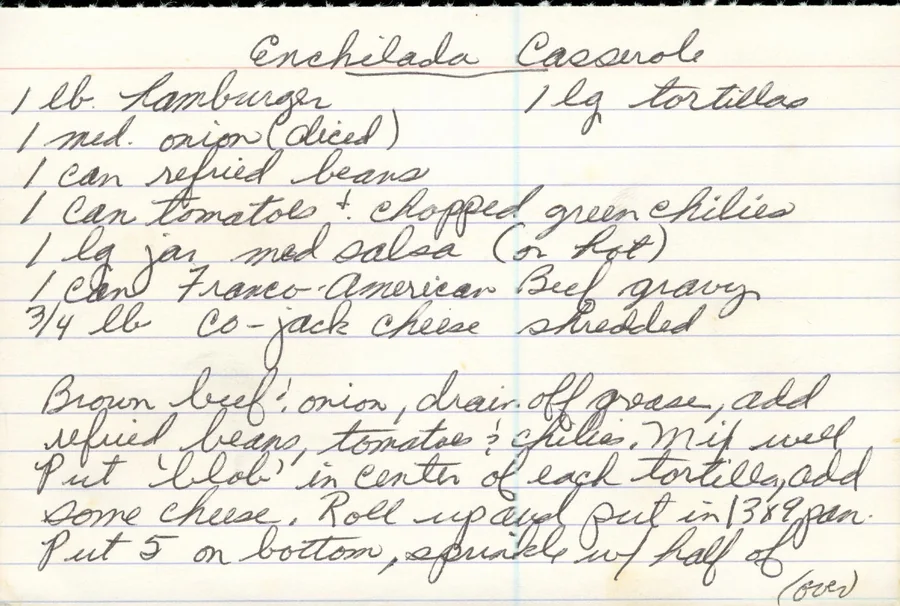 Enchilada Casserole
1 lb. hamburger 1 lg tortillas
1 med. onion (diced)
1 can refried beans
1 can tomatoes & chopped green chilies
1 lg jar med salsa (or hot)
1 can Franco-American Beef gravy
3/4 lb Co-jack cheese shredded
Brown beef & onion, drain off grease, add
refried beans, tomatoes & chilies. Mix well
Put 'blob' in center of each tortilla, add
some cheese. Roll up and put in 13x9 pan.
Put 5 on bottom, sprinkle w/ half of
(over)